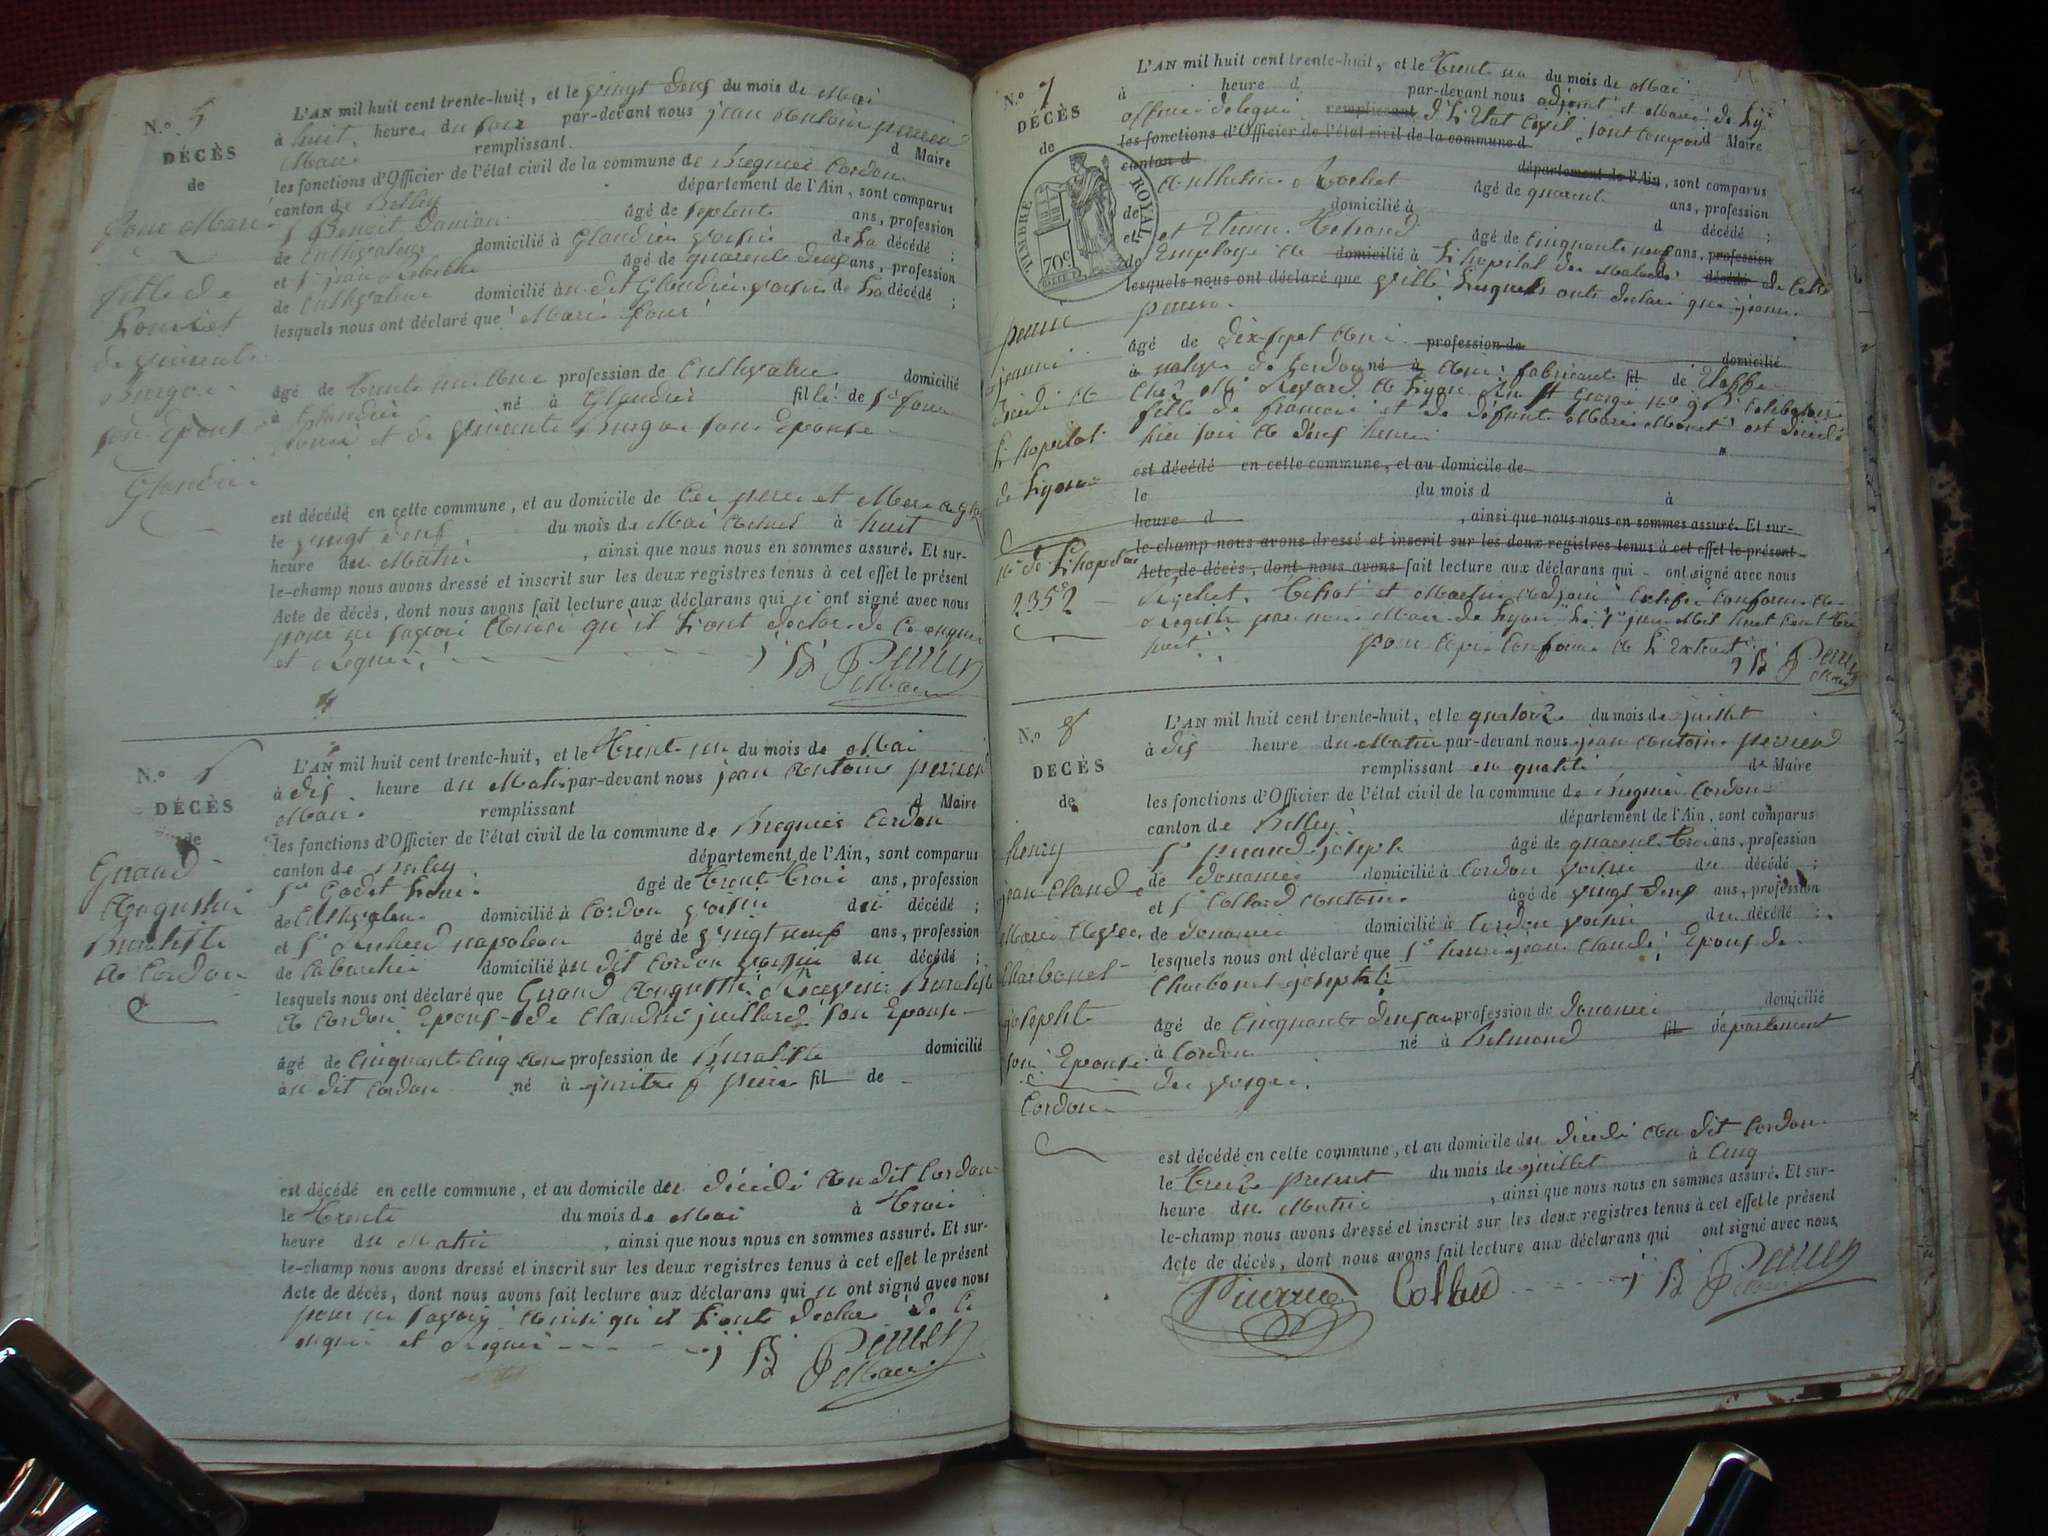 N.o 5
DÉCÈS
de
fille de
Glandieu
L'AN mil huit cent trente-huit, et le vingt deux du mois de Mai
à huit heure du soir par-devant nous jean Antoine perren
Maire remplissant d Maire
les fonctions d'Officier de l'état civil de la commune de Bregnier Cordon
canton de Belley département de l'Ain, sont comparus
Sr Benoit âgé de septente ans, profession
de Cultivateur domicilié à Glandieu voisin de La décédé ;
et Sr jean âgé de quarente deux ans, profession
de Cultivateur domicilié au dit Glandieu voisin de La décédé ;
lesquels nous ont déclaré que Marie
âgé de trente un ans profession de Cultivateur domicilié
à Glandieu né à Glandieu fille de Sr
et de son Epouse
est décédé en cette commune, et au domicile de Ces père et Mère
le vingt deux du mois de Mai à huit
heure du Matin , ainsi que nous nous en sommes assuré. Et sur-
le-champ nous avons dressé et inscrit sur les deux registres tenus à cet effet le présent
Acte de décès, dont nous avons fait lecture aux déclarans qui n ont signé avec nous
pour ne savoir Ainsi qu'il L'ont declaré de Ce enquis
et Requis
j B Perren
Maire
N.o 6
DÉCÈS
de
Guard
Augustin
Buraliste
a Cordon
L'AN mil huit cent trente-huit, et le trente un du mois de Mai
à dix heure du Matin par-devant nous jean Antoine perren
Maire remplissant d Maire
les fonctions d'Officier de l'état civil de la commune de Bregnier Cordon
canton de Beley département de l'Ain, sont comparus
Sr Godet Louis âgé de trente trois ans, profession
de Cultivateur domicilié à Cordon voisin du décédé ;
et Sr napoleon âgé de vingt neuf ans, profession
de Cabaretier domicilié au dit Cordon voisin du décédé ;
lesquels nous ont déclaré que Guard Augustin Buraliste
a Cordon Epoux de Claudine juillard son Epouse
âgé de Cinquante Cinq ans profession de Buraliste domicilié
au dit Cordon né à fil de
est décédé en cette commune, et au domicile du décédé au dit Cordon
le trente du mois de Mai à trois
heure du Matin , ainsi que nous nous en sommes assuré. Et sur-
le-champ nous avons dressé et inscrit sur les deux registres tenus à cet effet le présent
Acte de décès, dont nous avons fait lecture aux déclarans qui n ont signé avec nous
pour ne savoir Ainsi qu'il L'ont declaré de Ce
enquis et Requis
j B Perren
Maire
N.o 7
DÉCÈS
de
TIMBRE ROYAL
70c
jeanne
décédé a
L'hopital
de Lyon
no de L'hopital
2352
L'AN mil huit cent trente-huit, et le trente un du mois de Mai
à heure d par-devant nous adjoint et Maire de Lyon
officier délégué remplissant d L'Etat Civil, sont comparu d Maire
les fonctions d'Officier de l'état civil de la commune d
canton d département de l'Ain, sont comparus
Anthelme Rochet âgé de quarente ans, profession
de domicilié à d décédé ;
et et Etienne âgé de cinquante neuf ans, profession
de Employe a domicilié à L'hopital des Malades décédé de Cette
lesquels nous ont déclaré que ville Lesquels onts declaré que jeanne
âgé de dix-sept ans profession de domicilié
à native de Cordon né à Ain fabricante fil de d'Etoffe
fille de francois et de défunte Marie est décédé
hier soir a deux heures
est décédé en cette commune, et au domicile de
le du mois d à
heure d , ainsi que nous nous en sommes assuré. Et sur-
le-champ nous avons dressé et inscrit sur les deux registres tenus à cet effet le présent
Acte de décès, dont nous avons fait lecture aux déclarans qui ont signé avec nous
Rochet, et Martin adjoint
Registre par nous Maire de Lyon Le 1er juin Mil huit Cent trente
huit pour Copie Conforme a L'Extrait
j B Perren
Maire
N.o 8
DÉCÈS
de
henry
jean Claude
Charbonel
josephte
son Epouse
Cordon
L'AN mil huit cent trente-huit, et le quatorze du mois de juillet
à dix heure du Matin par-devant nous jean Antoine perren
remplissant en qualité de Maire
les fonctions d'Officier de l'état civil de la commune de Bregnier Cordon
canton de Belley département de l'Ain, sont comparus
Sr joseph âgé de quarente trois ans, profession
de douanier domicilié à Cordon voisin du décédé ;
et Sr Collard Antoine âgé de vingt deux ans, profession
de douanier domicilié à Cordon voisin du décédé ;
lesquels nous ont déclaré que Sr henry jean Claude, Epoux de
Charbonel josephte
âgé de Cinquante deux ans profession de douanier domicilié
à Cordon né à Belmond fil de département
des vosges.
est décédé en cette commune, et au domicile du décédé au dit Cordon
le treize présent du mois de juillet à Cinq
heure du Matin , ainsi que nous nous en sommes assuré. Et sur-
le-champ nous avons dressé et inscrit sur les deux registres tenus à cet effet le présent
Acte de décès, dont nous avons fait lecture aux déclarans qui ont signé avec nous
Collard j B Perren